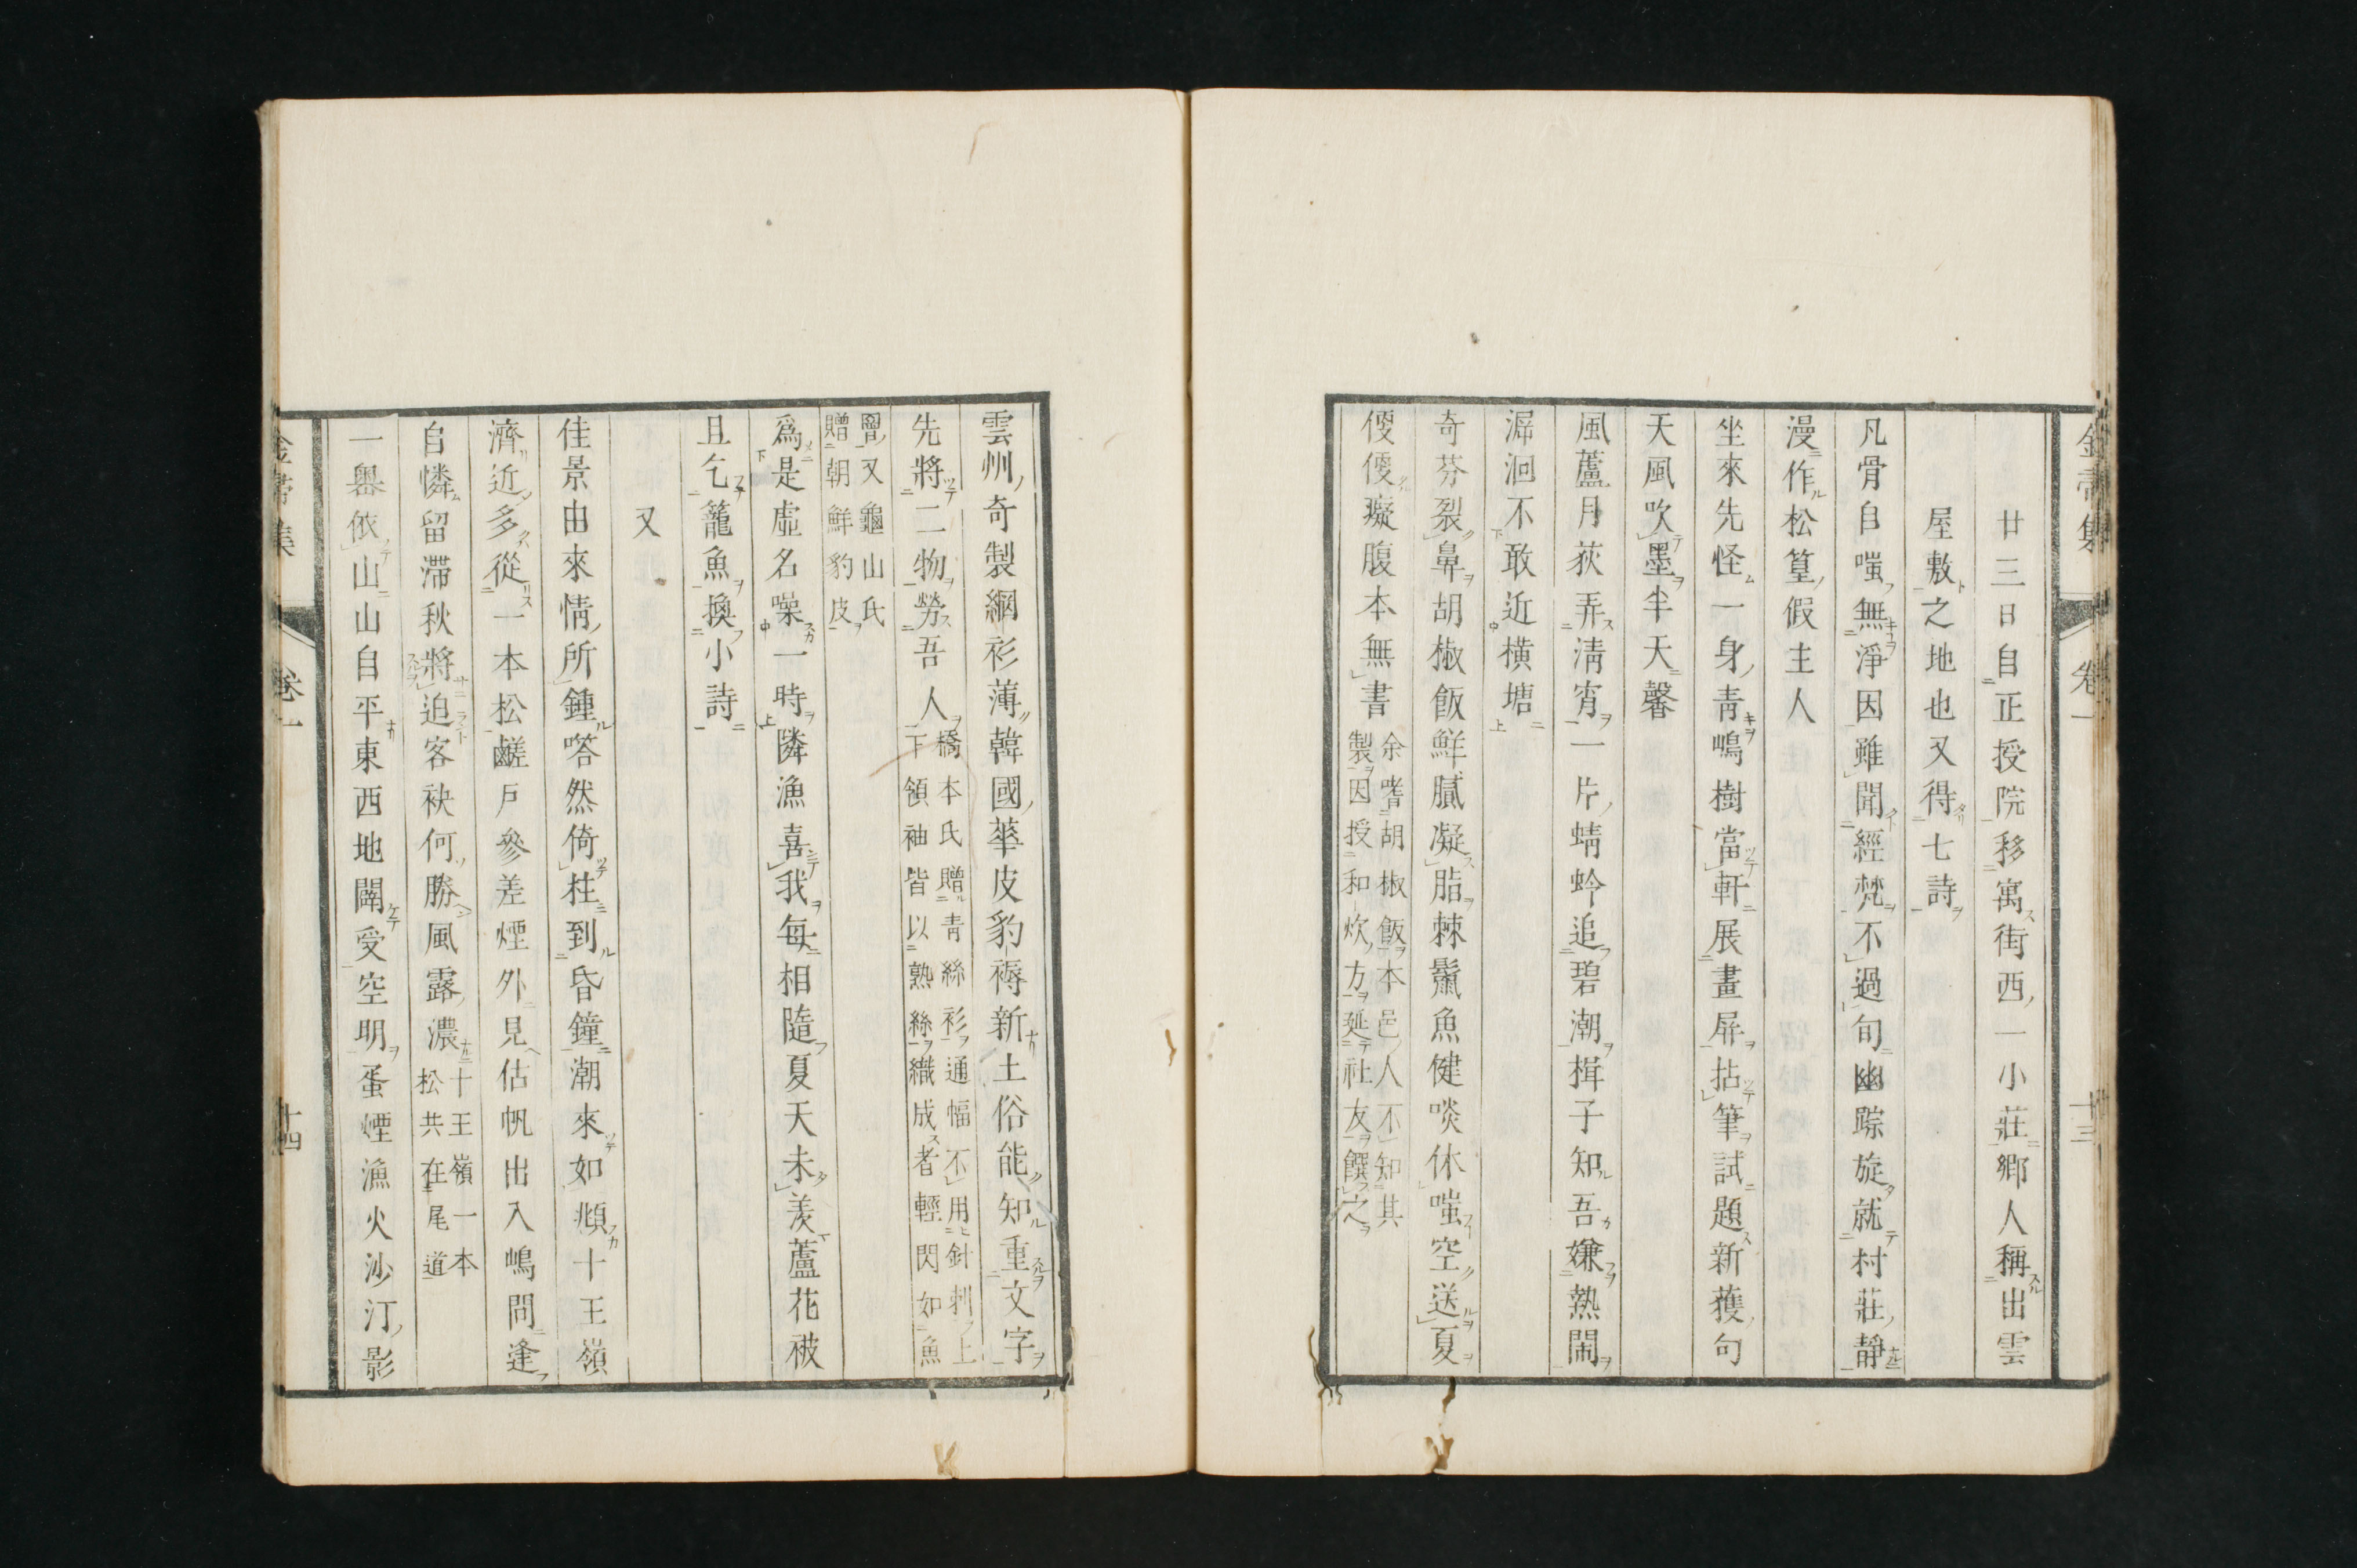 廿三日自正授院移寓街西一小莊鄉人稱出雲
屋敷之地也又得七詩
凡骨自嗤無淨因雖聞經梵不過旬幽踪旋就村莊靜
漫作松篁假主人
坐來先怪一身青嶋樹當軒展畫屏拈筆試題新獲句
天風吹墨半天馨
風蘆月荻弄淸宵一片蜻蛉追碧潮揖子知吾嫌熱鬧
潺洄不敢近橫塘
奇芬裂鼻胡椒飯鮮膩凝脂棘鬣魚健啖休嗤空送夏
便便癡腹本無書
余嗜胡椒飯本邑人不知其
製因授和炊方延社友饌之
雲州奇製網衫薄韓國華皮豹褥新土俗能知重文字
先將二物勞吾人
橋本氏贈青絲衫通幅不用針刺上
下領袖皆以熟絲織成者輕閃如魚
罾又龜山氏
贈朝鮮豹皮
爲是虛名噪一時隣漁喜我每相隨夏天未羨蘆花被
且乞籠魚換小詩
又
佳景由來情所鍾嗒然倚柱到昏鐘潮來如傾十王嶺
濟近多從一本松鹺戶參差煙外見估帆出入嶋間逢
自憐留滯秋將迫客袂何勝風露濃
十王嶺一本
松共在尾道
一嶴依山山自平東西地闢受空明蛋煙漁火沙汀影
卷一
十三
卷一
十四